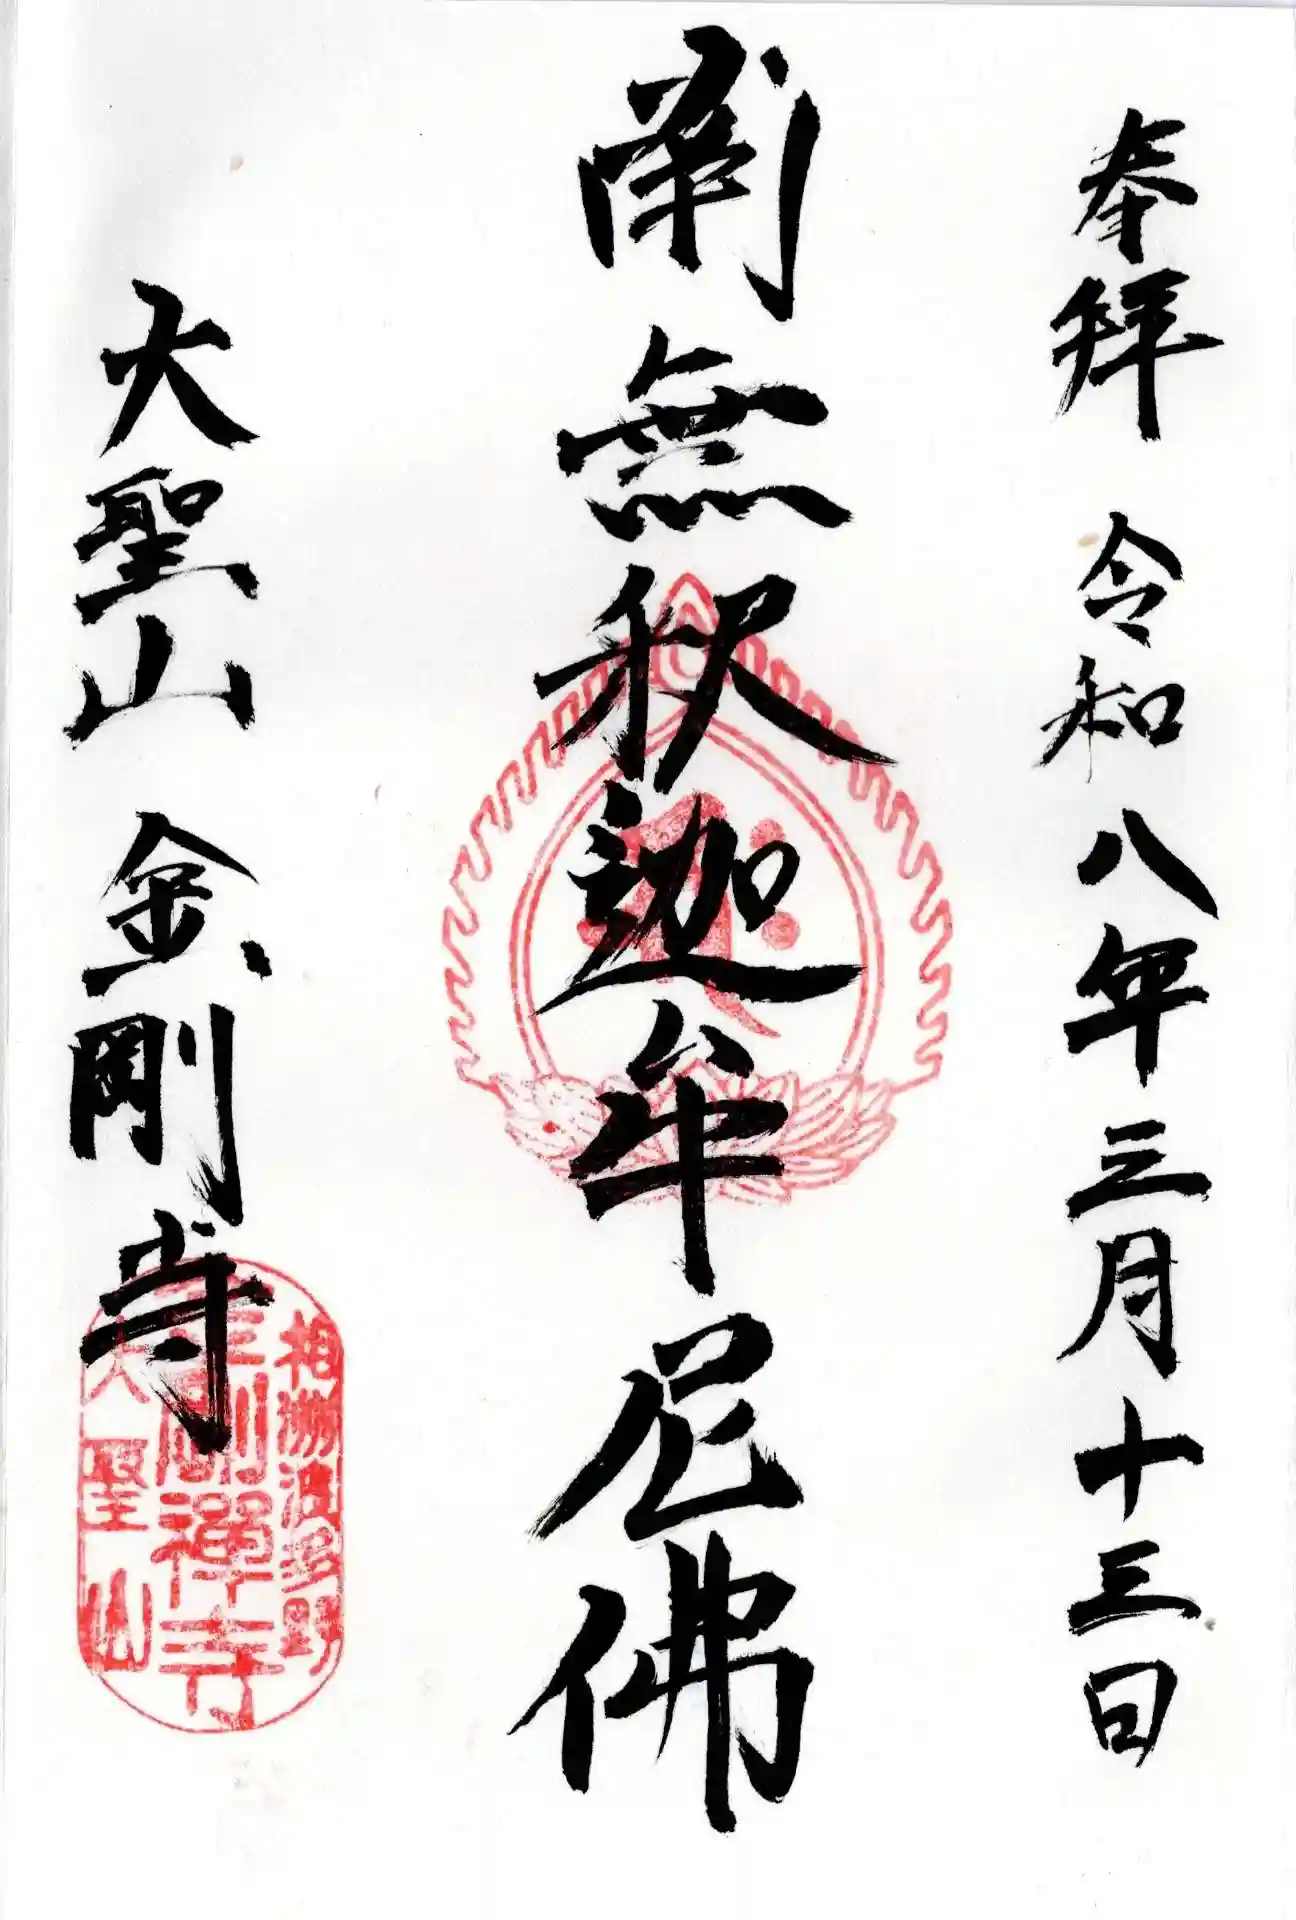 奉拜 令和八年三月十三日
南無釈迦牟尼佛
大聖山 金剛寺
相州波多野
金剛禅寺
大聖山